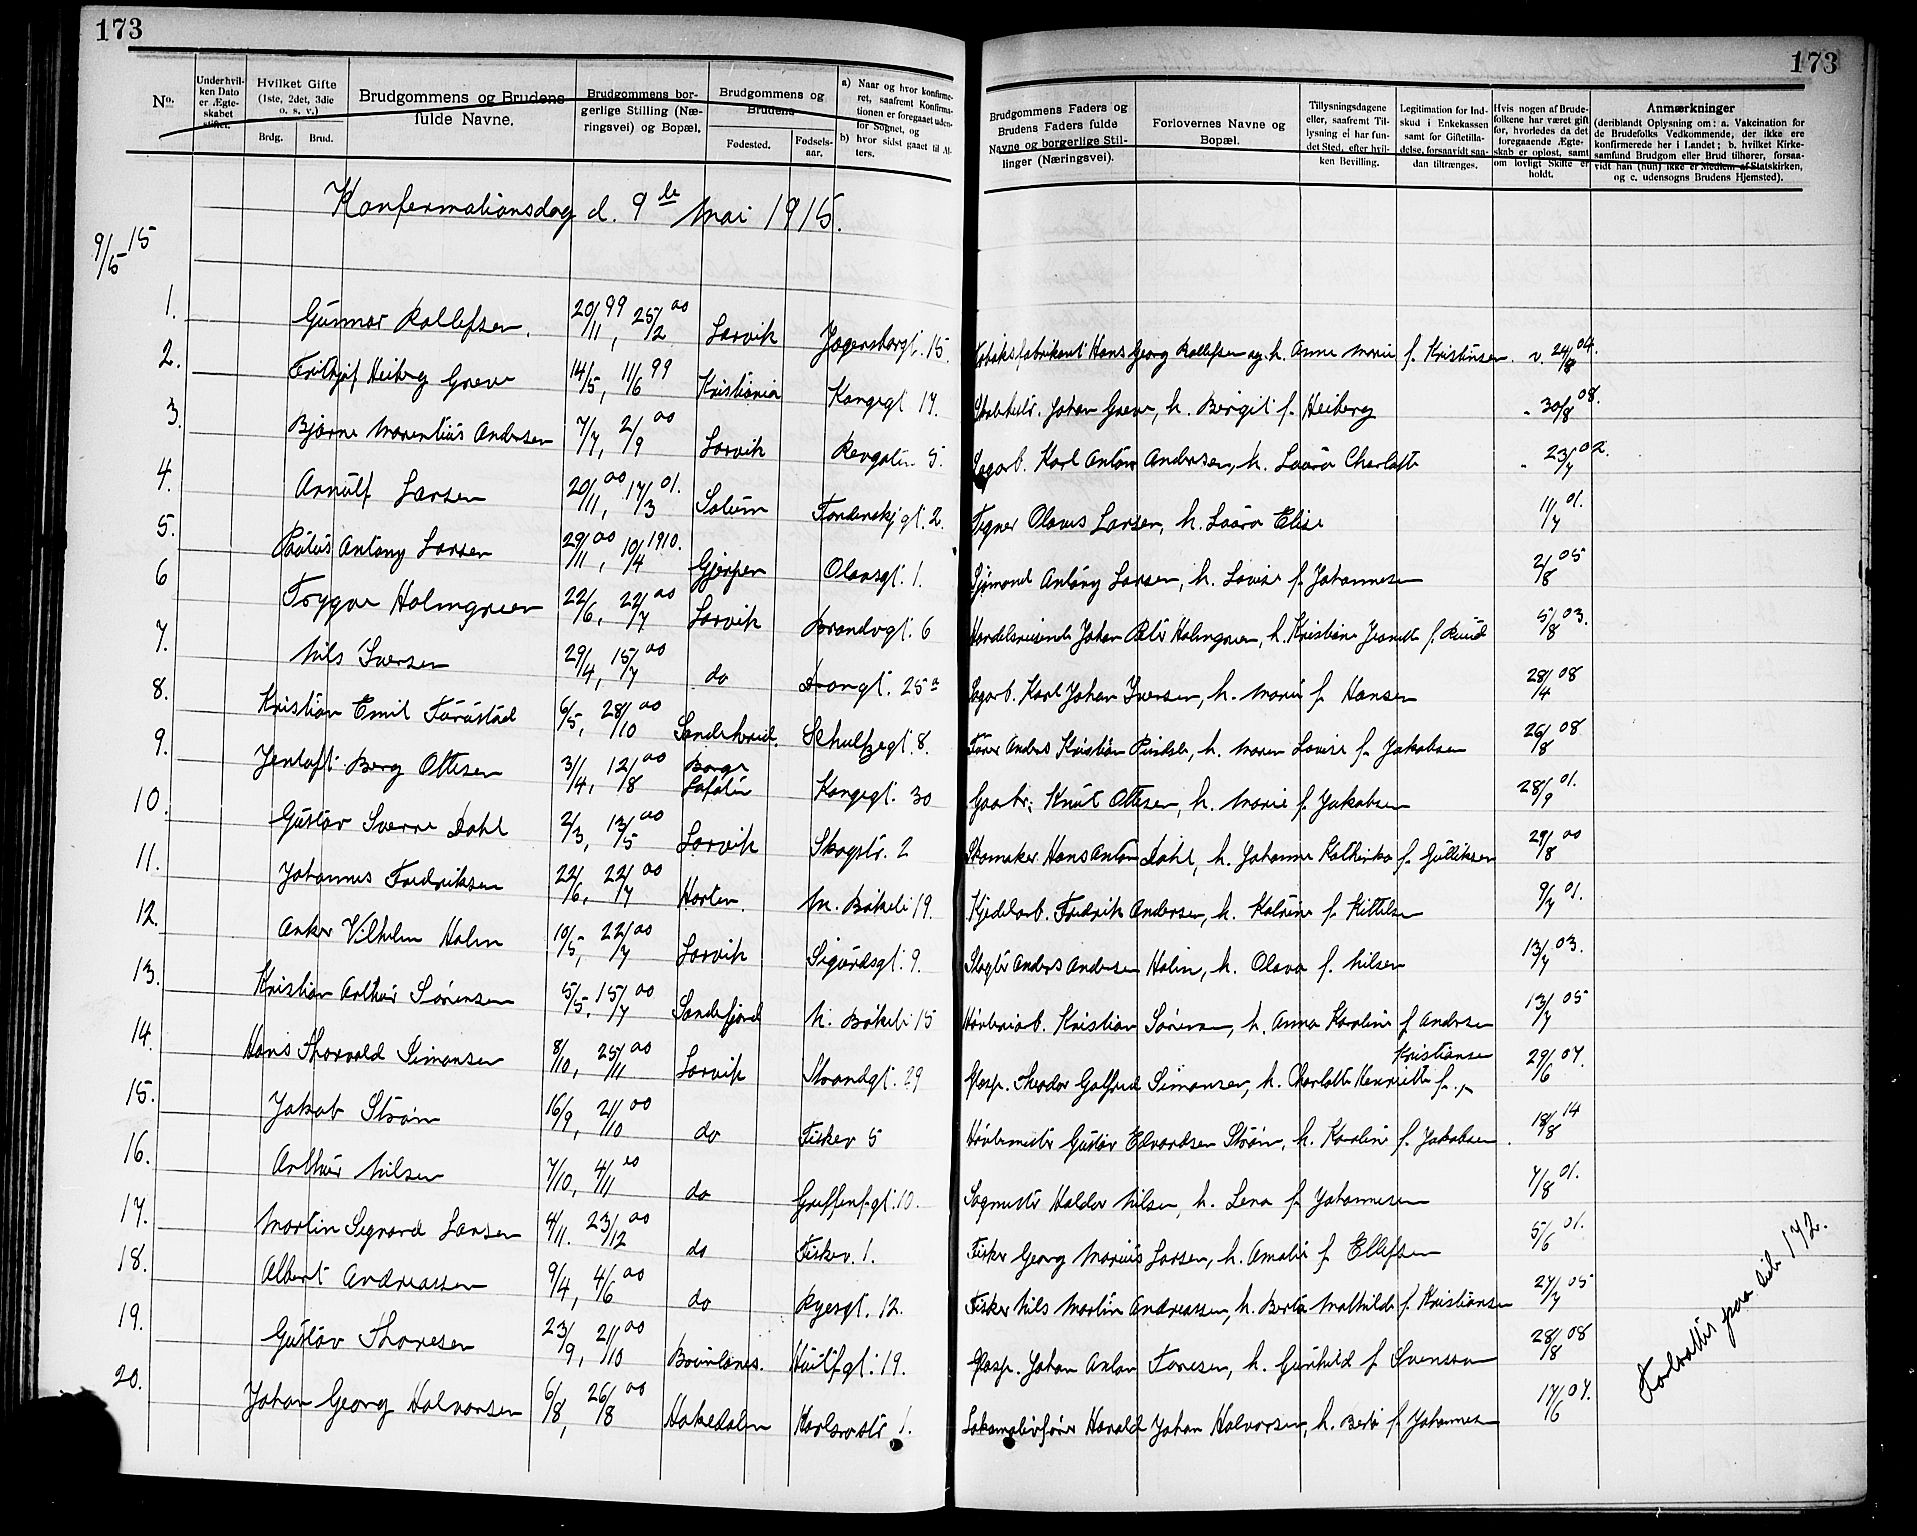 173
173
No.
Underhvilken Dato er Ægteskabet stiftet.
Hvilket Gifte (1ste, 2det, 3die o. s. v.)
Brdg. Brud.
Brudgommens og Brudens fulde Navne.
Brudgommens borgerlige Stilling (Næringsvei) og Bopæl.
Brudgommens og Brudens
Fødested. Fødselsaar.
a) Naar og hvor konfirmeret, saafremt Konfirmationen er foregaaet udenfor Sognet, og
b) hvor sidst gaaet til Alters.
Brudgommens Faders og Brudens Faders fulde Navne og borgerlige Stillinger (Næringsvei).
Forlovernes Navne og Bopæl.
Tillysningsdagene eller, saafremt Tillysning ei har fundet Sted, efter hvilken Bevilling.
Legitimation for Indskud i Enkekassen samt for Giftetilladelse, forsaavidt saadan tiltrænges.
Hvis nogen af Brudefolkene har været gift før, hvorledes da det foregaaende Ægteskab er opløst, samt om lovligt Skifte er holdt.
Anmærkninger
(deriblandt Oplysning om: a. Vakcination for de Brudefolks Vedkommende, der ikke ere konfirmerede her i Landet; b. hvilket Kirkesamfund Brudgom eller Brud tilhører, forsaavidt han (hun) ikke er Medlem af Statskirken, og c. udensogns Brudens Hjemsted).
Konfermationsdag d. 9de Mai 1915.
9/5 15
1. Gunnar Rollefsen. 20/11 99, 25/2 00 Larvik Jegersborgt. 15. Tobaksfabrikant Hans Georg Rollefsen og h. Anne Marie f. Kristinsen. v. 24/8 04.
2. Frithjof Heiberg Greve 14/5, 11/6 99 Kristiania Kongegt 17. Johan Greve, h. Bergit f. Heiberg " 30/8 08.
3. Bjarne Marentius Andersen 7/7, 2/9 00 Larvik Revgatin 5. Sagarb. Karl Anton Andersen, h. Laura Charlotte " 23/7 02.
4. Arnulf Larsen 20/11 00, 17/3 01. Solum Tordenskj gt. 2. Tegner Olaus Larsen, h. Laura Elise 11/7 01.
5. Paulus Antony Larsen 29/11 00, 10/4 1910. Gjerpen Olavsgt. 1. Sjømand Antony Larsen, h. Lovise f. Johannesen 2/8 05
6 Trygve Holmgreen 22/6, 22/7 00 Larvik Brandvgt. 6 Handelsreisende Johan Peter Holmgreen, h. Kristine Jeanette f. Ruud 5/8 03.
7. Nils Iversen 29/4, 15/7 00 do Drongt. 25a Sagarb. Karl Johan Iversen, h. Marie f. Hansen 28/4 08
8. Kristian Emil Furustad 6/5, 28/10 00 Sandeherred. Schultzegt. 8. Anders Kristian Rindal, h. Maren Lovise f. Jakobsen 26/8 08.
9. Jentoft Berg Ottesen 3/4, 12/8 00 Borge Lofoten Kongegt. 30 Gaabr. Knut Ottesen, h. Marie f. Jakobsen 28/9 01.
10. Gustav Sverre Dahl 2/3, 13/5 00 Larvik Skogstr. 2 Skomaker Hans Anton Dahl, h. Johanne Kathinka f. Gulliksen 29/8 00
11. Johannes Fredriksen 22/6, 22/7 00 Horten. N. Bøkeli 19. Kjedelarb. Fredrik Andersen, h. Katrine f. Kittelsen 9/7 01.
12. Anker Vilhelm Holm 10/5, 22/7 00 Larvik Sigurdsgt. 9. Slagter Anders Andersen Holm, h. Olava f. Nilsen 13/7 03.
13. Kristian Arthur Sørensen 5/5, 15/7 00 Sandefjord N. Bøkeli 15 Høvleriarb. Kristian Sørensen, h. Anna Karoline f. Andersen 13/7 05
14. Hans Thorvald Simonsen 8/10, 25/11 00 Larvik Strandgt. 29 Glasp. Theodor Gotfred Simonsen, h. Charlotte Henriette f. Kristiansen 29/6 07.
15. Jakob Strøm 16/9, 21/10 00 do Fiskev 5 Høvlemester Gustav Edvardsen Strøm, h. Karoline f. Jakobsen. 18/8 14
16. Arthur Nilsen 7/10, 4/11 00 do Greffenf. gt. 10. Sagmester Haldor Nilsen, h. Lena f. Johannesen 7/8 01.
17. Martin Segvard Larsen 4/11. 23/12 00 do Fiskev. 1. Fisker Georg Marius Larsen, h. Amalie f. Ellefsen 5/6 01.
18. Albert Andreassen 9/4, 4/6 00 do Ryesgt. 12. Fisker Nils Martin Andreassen, h. Berta Mathilde f. Kristiansen 27/7 05
19. Gustav Thoresen 23/9, 21/10 00 Brunlanes. Huitf.gt. 19. Glasp. Johan Anton Toresen, h. Gunhild f. Svensson 28/8 08
20. Johan Georg Halvorsen 6/8, 26/8 00 Hakedalen Karlsrostr 1. Lokomotivfører Harald Johan Halvorsen, h. Berte f. Johannesen 17/6 07.
Fortsættes paa side 172.